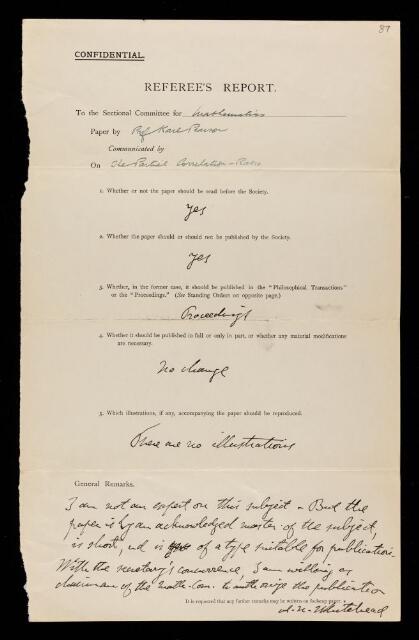 87
CONFIDENTIAL.
REFEREE'S REPORT.
To the Sectional Committee for Mathematics
Paper by Prof Karl Pearson
Communicated by
On The Partial Correlation-Ratio
1. Whether or not the paper should be read before the Society.
Yes
2. Whether the paper should or should not be published by the Society.
Yes
3. Whether, in the former case, it should be published in the "Philosophical Transactions"
or the "Proceedings." (See Standing Orders on opposite page.)
Proceedings
4. Whether it should be published in full or only in part, or whether any material modifications
are necessary.
No change
5. Which illustrations, if any, accompanying the paper should be reproduced.
There are no illustrations
General Remarks.
I am not an expert on this subject - But the
paper is by an acknowledged master of the subject,
is short, and is of a type suitable for publication.
With the secretary's concurrence, I am willing as
chairman of the Math. Com. to authorize the publication
It is requested that any further remarks may be written on foolscap paper.
A. N. Whitehead